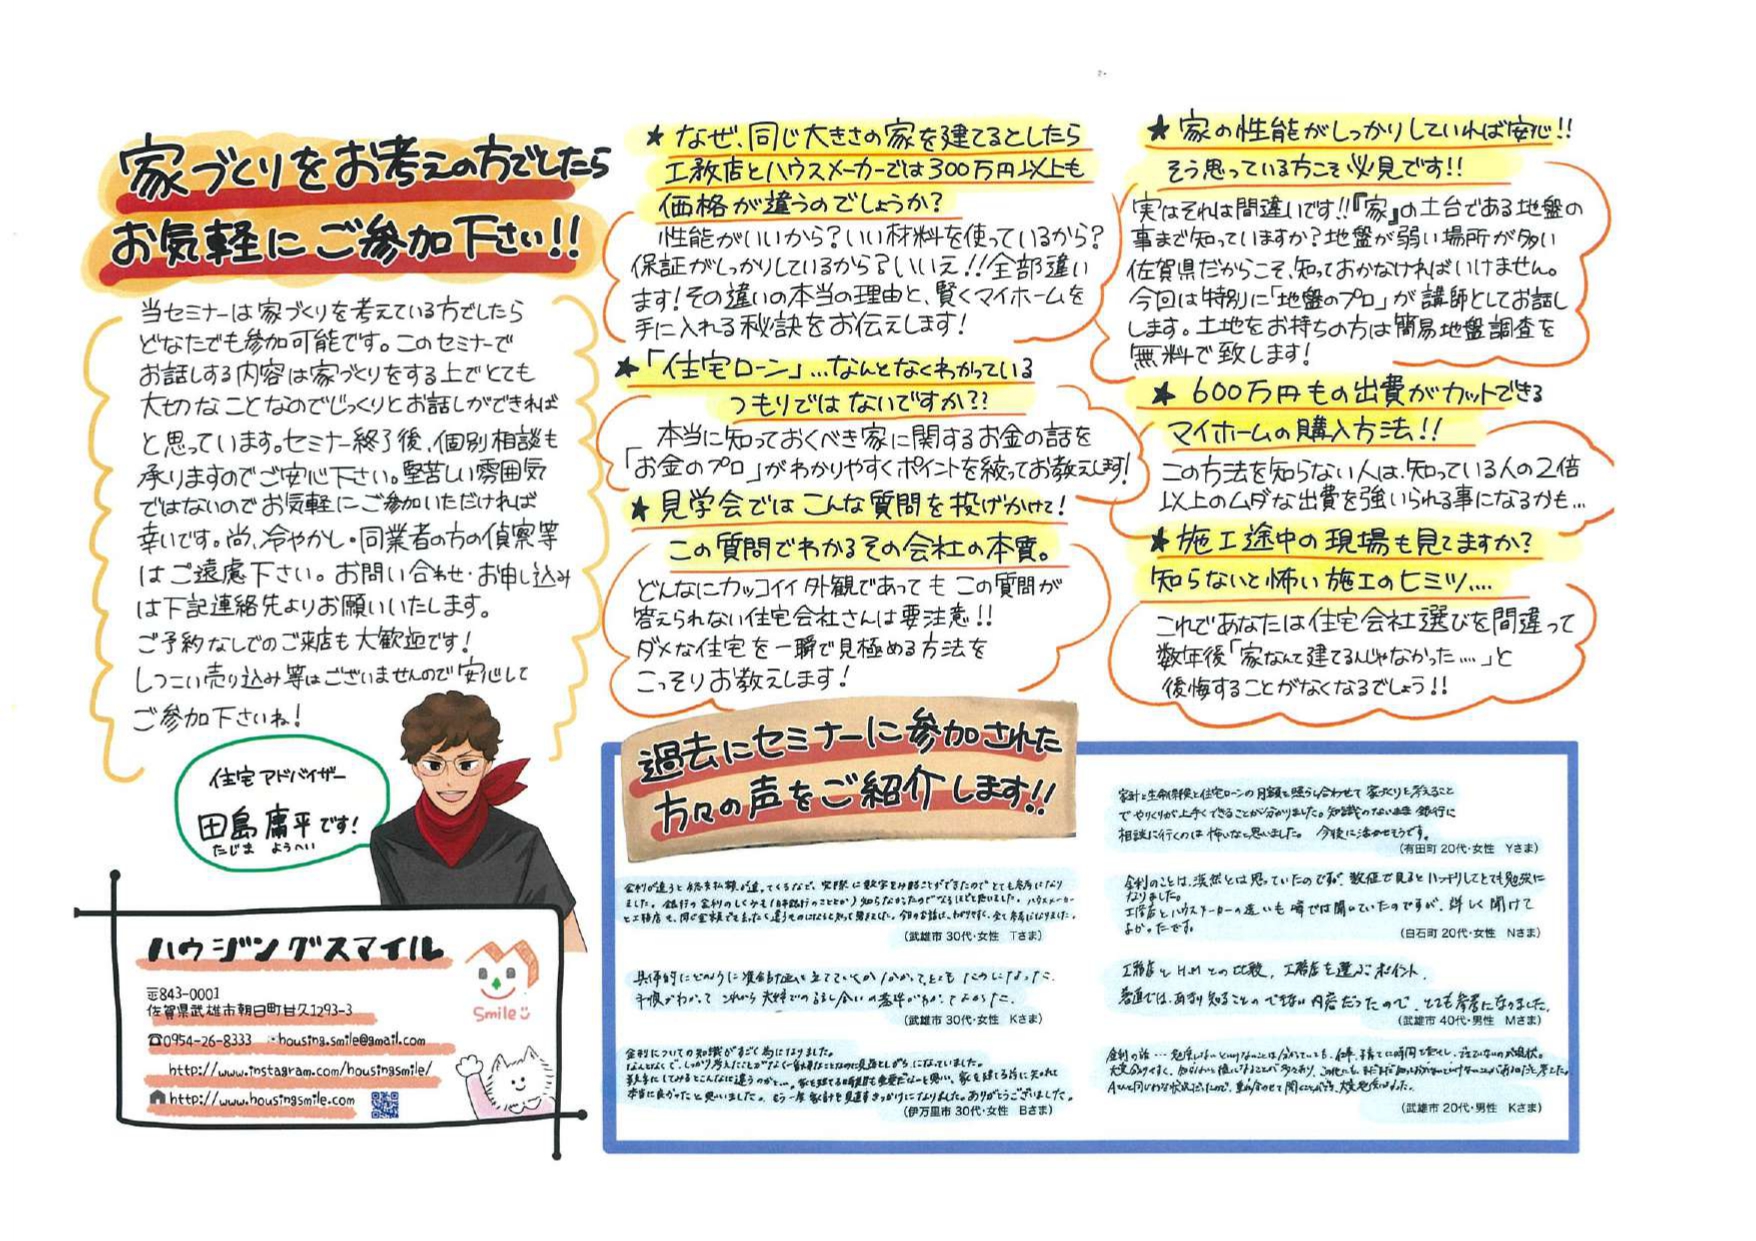 家づくりをお考えの方でしたら
お気軽にご参加下さい!!
当セミナーは家づくりを考えている方でしたら
どなたでも参加可能です。このセミナーで
お話しする内容は家づくりをする上でとても
大切なことなのでじっくりとお話しができれば
と思っています。セミナー終了後、個別相談も
承りますのでご安心下さい。堅苦しい雰囲気
ではないのでお気軽にご参加いただければ
幸いです。尚、冷やかし・同業者の方の偵察等
はご遠慮下さい。お問い合わせ・お申し込み
は下記連絡先よりお願いいたします。
ご予約なしでのご来店も大歓迎です!
しつこい売り込み等はございませんので安心して
ご参加下さいね!
住宅アドバイザー
田島庸平です!
たじま ようへい
ハウジングスマイル
〒843-0001
佐賀県武雄市朝日町甘久1293-3
☎0954-26-8333 housing.smile@gmail.com
http://www.instagram.com/housingsmile/
http://www.housingsmile.com
Smile
★なぜ、同じ大きさの家を建てるとしたら
工務店とハウスメーカーでは300万円以上も
価格が違うのでしょうか?
性能がいいから?いい材料を使っているから?
保証がしっかりしているから?いいえ!!全部違い
ます!その違いの本当の理由と、賢くマイホームを
手に入れる秘訣をお伝えします!
★「住宅ローン」…なんとなくわかっている
つもりではないですか??
本当に知っておくべき家に関するお金の話を
「お金のプロ」がわかりやすくポイントを絞ってお教えします!
★見学会ではこんな質問を投げかけて!
この質問でわかるその会社の本質。
どんなにカッコイイ外観であってもこの質問が
答えられない住宅会社さんは要注意!!
ダメな住宅を一瞬で見極める方法を
こっそりお教えします!
★家の性能がしっかりしていれば安心!!
そう思っている方こそ必見です!!
実はそれは間違いです!!『家』の土台である地盤の
事まで知っていますか?地盤が弱い場所が多い
佐賀県だからこそ、知っておかなければいけません。
今回は特別に「地盤のプロ」が講師としてお話し
します。土地をお持ちの方は簡易地盤調査を
無料で致します!
★600万円もの出費がカットできる
マイホームの購入方法!!
この方法を知らない人は、知っている人の2倍
以上のムダな出費を強いられる事になるかも…
★施工途中の現場も見てますか?
知らないと怖い施工のヒミツ….
これであなたは住宅会社選びを間違って
数年後「家なんて建てるんじゃなかった….」と
後悔することがなくなるでしょう!!
過去にセミナーに参加された
方々の声をご紹介します!!
(武雄市 30代・女性 Tさま)
(武雄市 30代・女性 Kさま)
金利についての知識がすごく為になりました。
本当に良かったと思いました。もう一度家計を見直すきっかけになりました。ありがとうございました。
(伊万里市 30代・女性 Bさま)
家計と生命保険と住宅ローンの月額を照らし合わせて家づくりを考えること
でやりくりが上手くできることが分かりました。知識のないまま銀行に
相談に行くのは怖いなと思いました。今後に活かせそうです。
(有田町 20代・女性 Yさま)
金利のことは、漠然とは思っていたのですが、数値で見るとハッキリしてとても勉強に
なりました。
工務店とハウスメーカーの違いも噂では聞いていたのですが、詳しく聞けて
よかったです。
(白石町 20代・女性 Nさま)
工務店とH.Mとの比較、工務店を選ぶポイント、
普通では、あまり知ることのできない内容だったので、とても参考になりました。
(武雄市 40代・男性 Mさま)
(武雄市 20代・男性 Kさま)